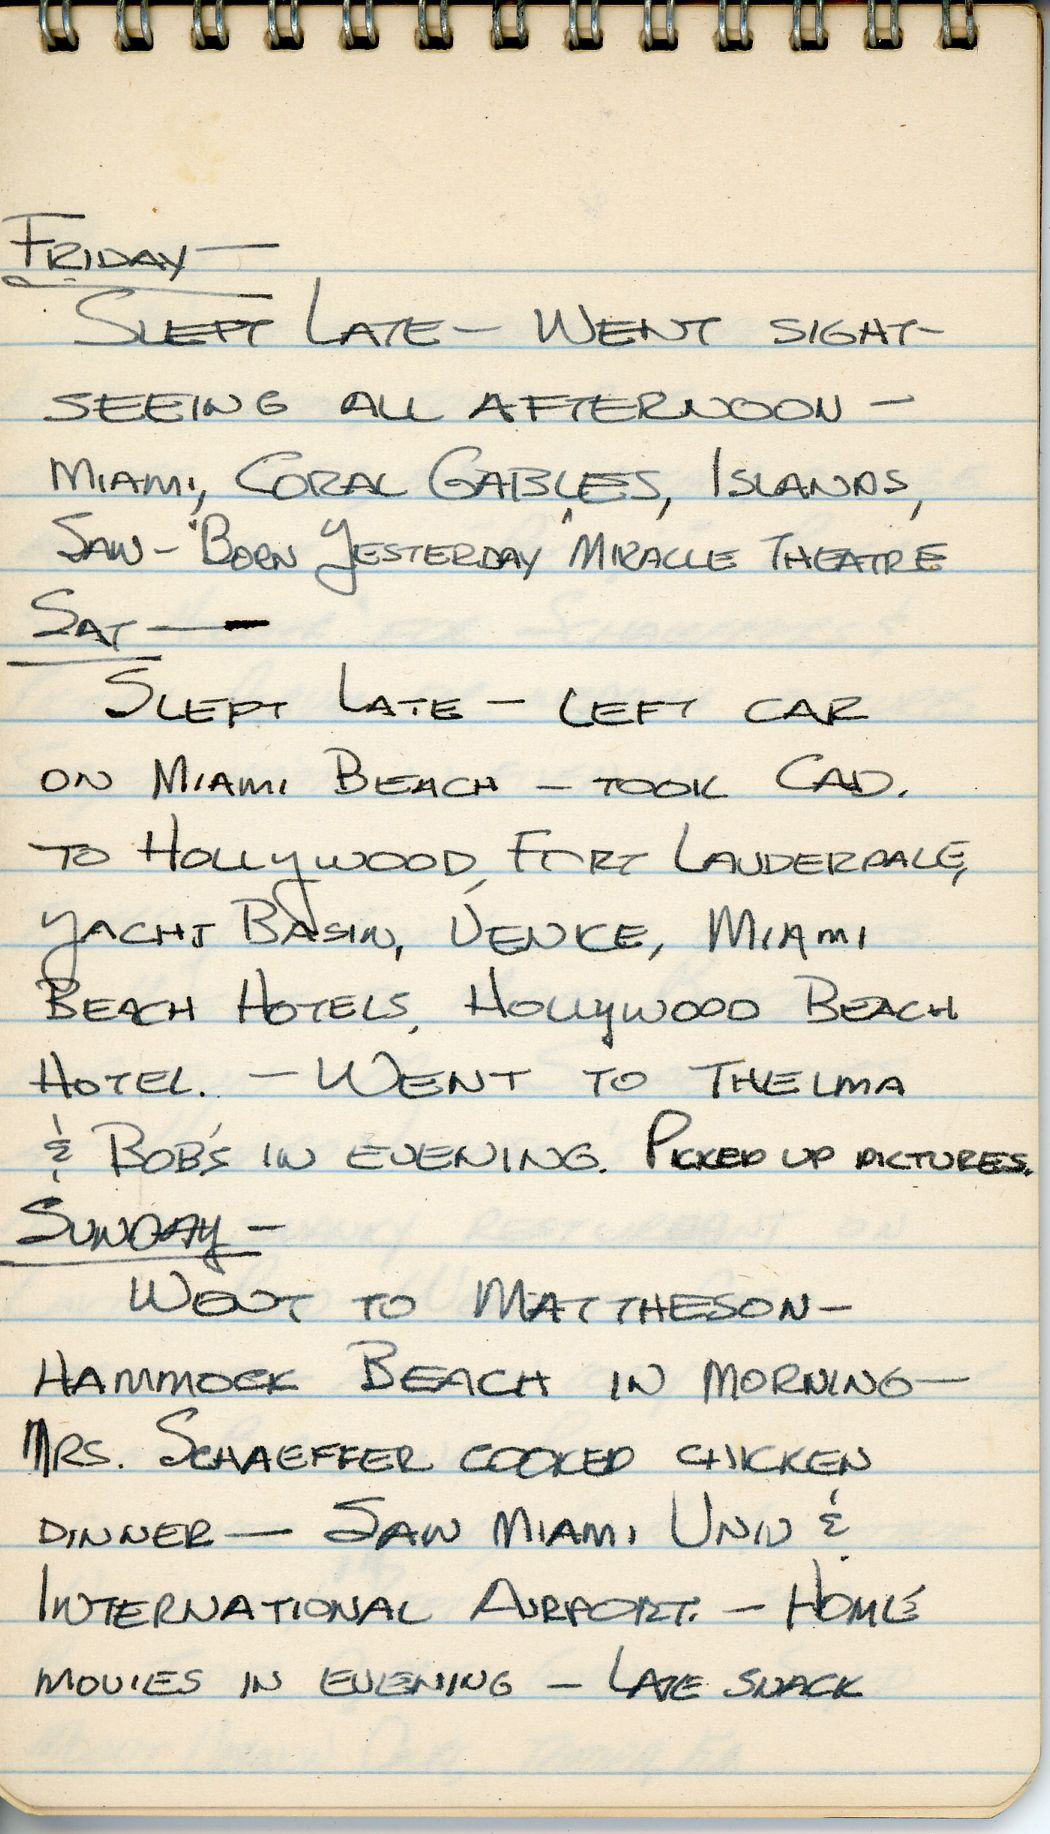 FRIDAY —
SLEPT LATE — WENT SIGHT-
SEEING ALL AFTERNOON —
MIAMI, CORAL GABLES, ISLANDS,
SAW — "BORN YESTERDAY" MIRACLE THEATRE
SAT —
SLEPT LATE — LEFT CAR
ON MIAMI BEACH — TOOK CAD.
TO HOLLYWOOD, FORT LAUDERDALE,
YACHT BASIN, VENICE, MIAMI
BEACH HOTELS, HOLLYWOOD BEACH
HOTEL. — WENT TO THELMA
& BOB'S IN EVENING. PICKED UP PICTURES.
SUNDAY —
WENT TO MATTHESON —
HAMMOCK BEACH IN MORNING —
MRS. SCHAEFFER COOKED CHICKEN
DINNER — SAW MIAMI UNIV &
INTERNATIONAL AIRPORT. — HOME
MOVIES IN EVENING — LATE SNACK